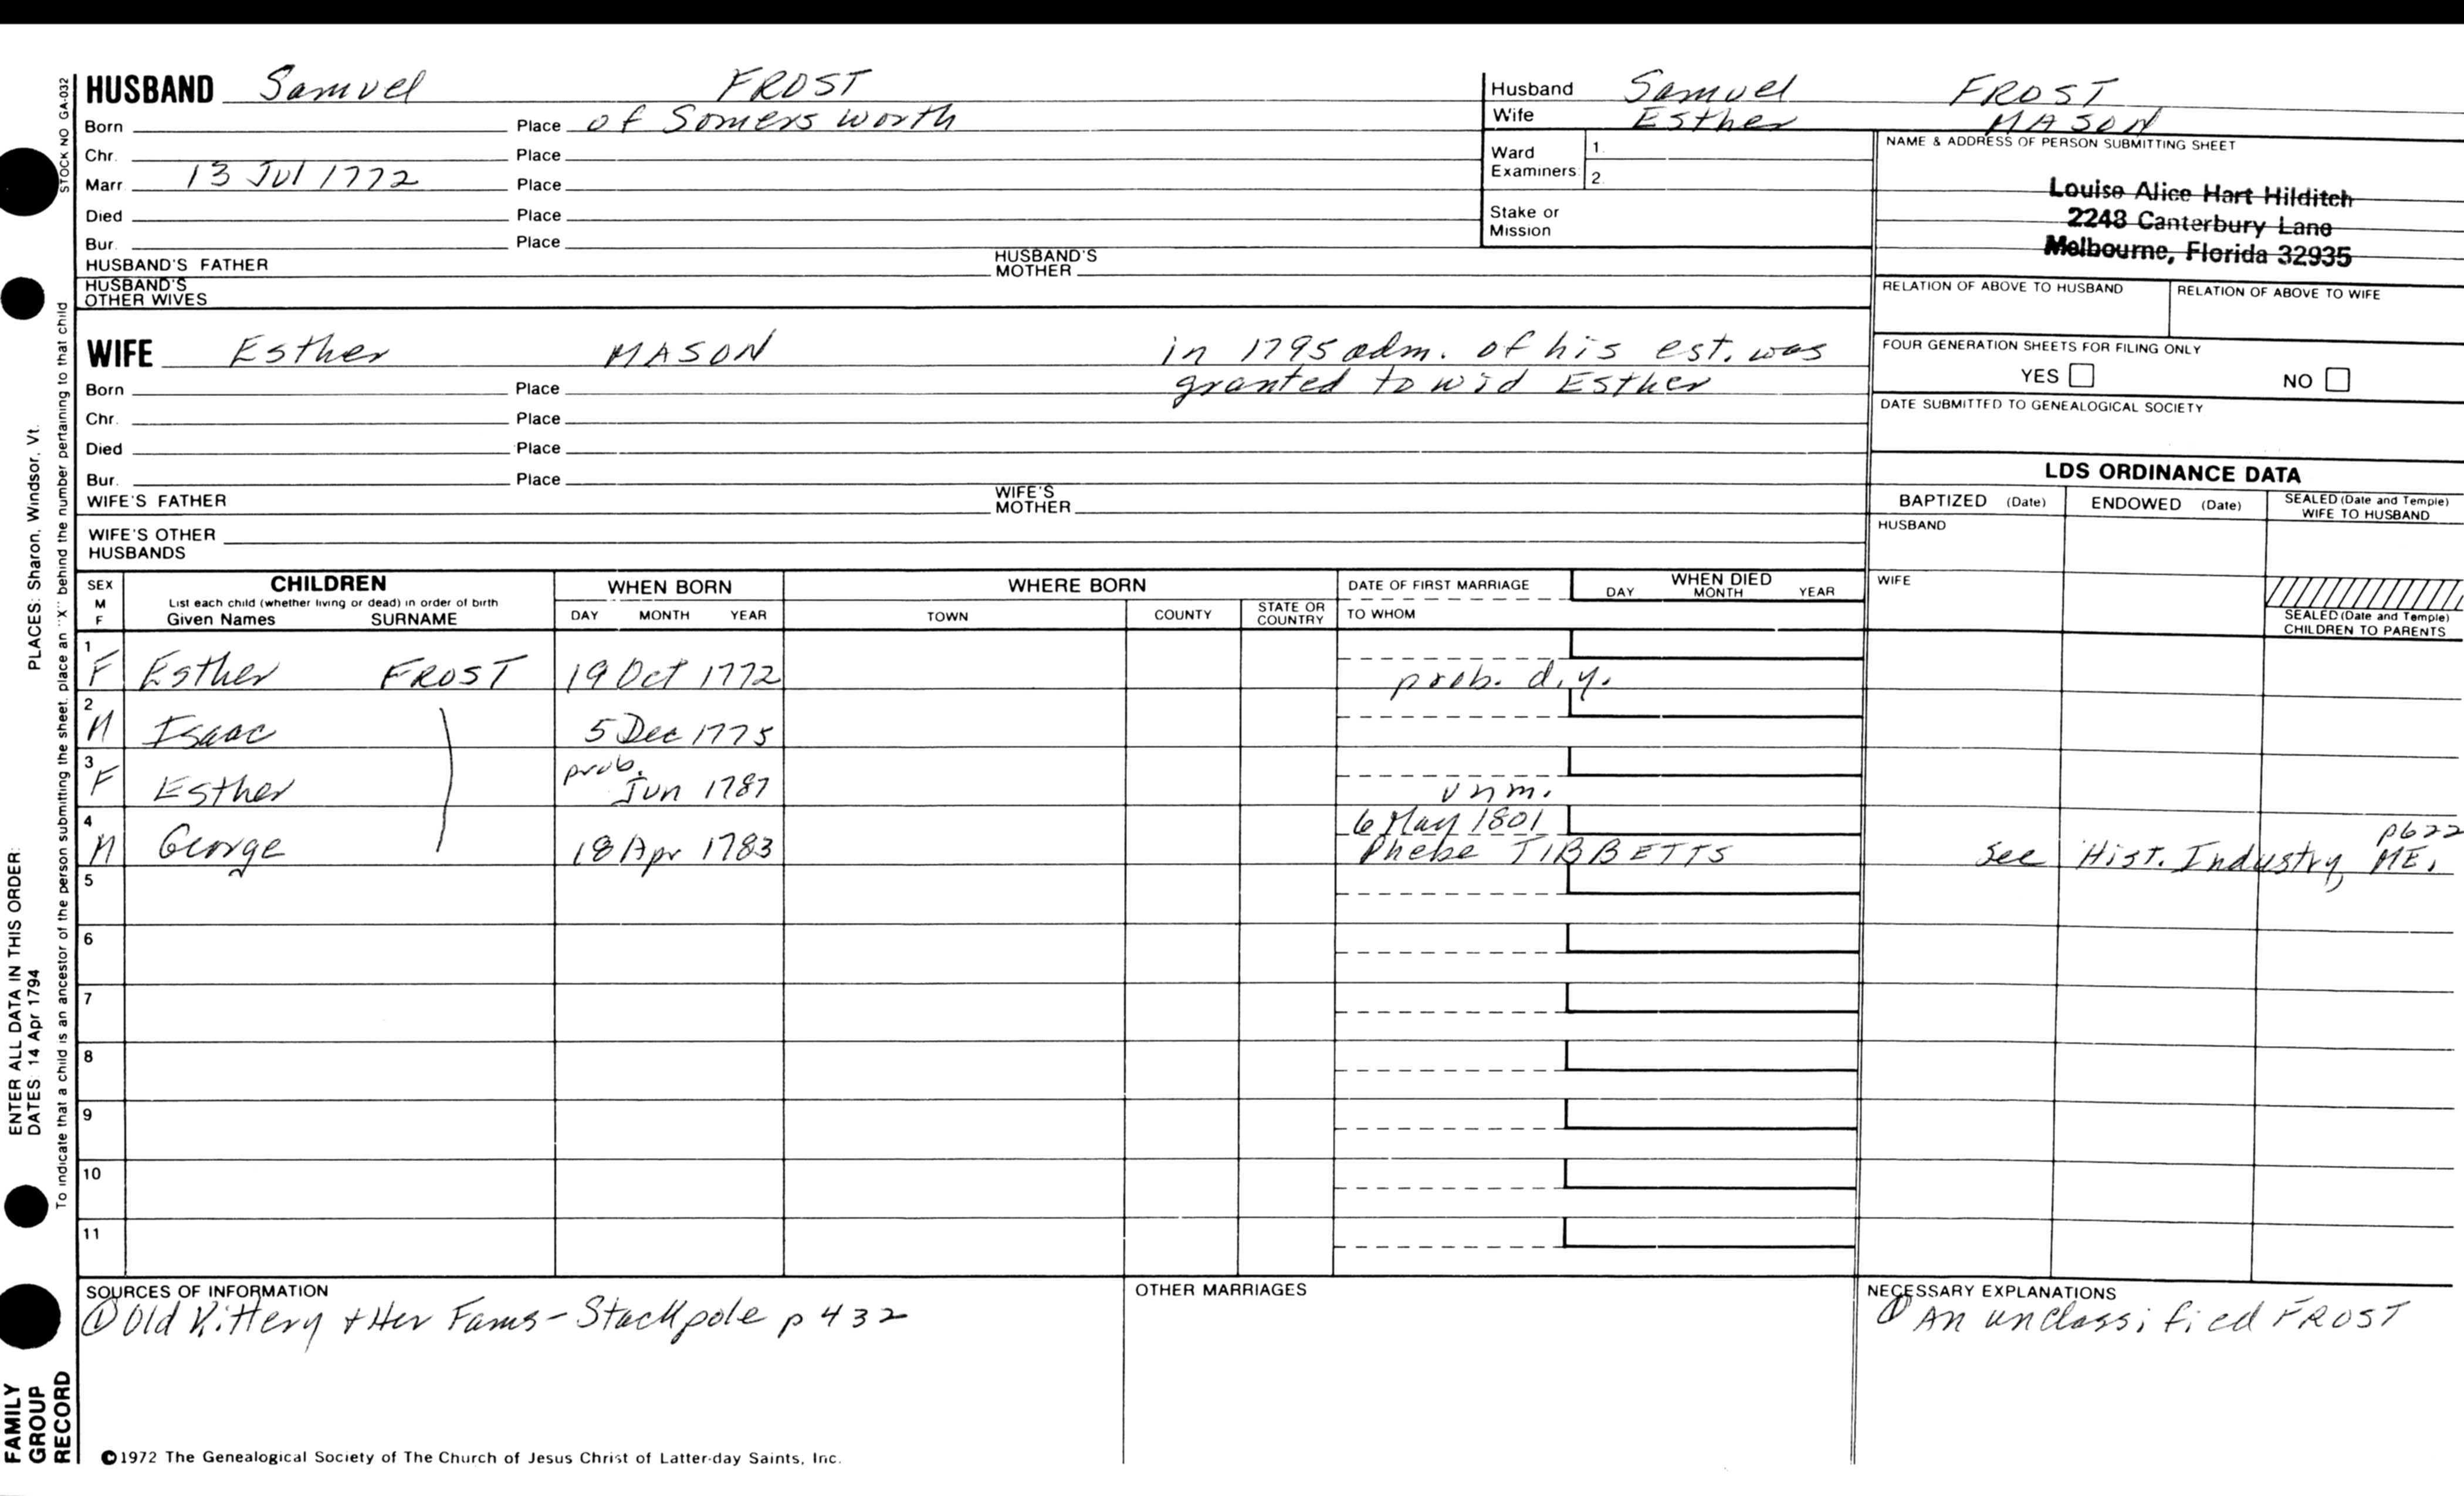 STOCK NO GA-032
HUSBAND Samuel FROST
Born Place of Somersworth
Chr. Place
Marr. 13 Jul 1772 Place
Died Place
Bur. Place
HUSBAND'S FATHER HUSBAND'S MOTHER
HUSBAND'S OTHER WIVES
Husband Samuel FROST
Wife Esther MASON
Ward Examiners: 1. 2.
Stake or Mission
NAME & ADDRESS OF PERSON SUBMITTING SHEET
Louise Alice Hart Hilditch
2248 Canterbury Lane
Melbourne, Florida 32935
RELATION OF ABOVE TO HUSBAND RELATION OF ABOVE TO WIFE
FOUR GENERATION SHEETS FOR FILING ONLY
YES NO
DATE SUBMITTED TO GENEALOGICAL SOCIETY
WIFE Esther MASON in 1795 adm. of his est. was
granted to wid Esther
Born Place
Chr. Place
Died Place
Bur. Place
WIFE'S FATHER WIFE'S MOTHER
WIFE'S OTHER HUSBANDS
LDS ORDINANCE DATA
BAPTIZED (Date) ENDOWED (Date) SEALED (Date and Temple) WIFE TO HUSBAND
HUSBAND
WIFE
SEALED (Date and Temple) CHILDREN TO PARENTS
SEX M F
CHILDREN
List each child (whether living or dead) in order of birth
Given Names SURNAME
WHEN BORN
DAY MONTH YEAR
WHERE BORN
TOWN COUNTY STATE OR COUNTRY
DATE OF FIRST MARRIAGE
TO WHOM
WHEN DIED
DAY MONTH YEAR
1 F Esther FROST 19 Oct 1772 prob. d.y.
2 M Isaac 5 Dec 1775
3 F Esther prob. Jun 1787 unm.
4 M George 18 Apr 1783 6 May 1801
Phebe TIBBETTS See Hist. Industry, ME. p622
5
6
7
8
9
10
11
SOURCES OF INFORMATION
① Old Kittery + Her Fams - Stackpole p 432
OTHER MARRIAGES
NECESSARY EXPLANATIONS
① An unclassified FROST
©1972 The Genealogical Society of The Church of Jesus Christ of Latter-day Saints, Inc.
FAMILY
GROUP
RECORD
ENTER ALL DATA IN THIS ORDER:
DATES: 14 Apr 1794
PLACES: Sharon, Windsor, Vt.
To indicate that a child is an ancestor of the person submitting the sheet, place an "X" behind the number pertaining to that child